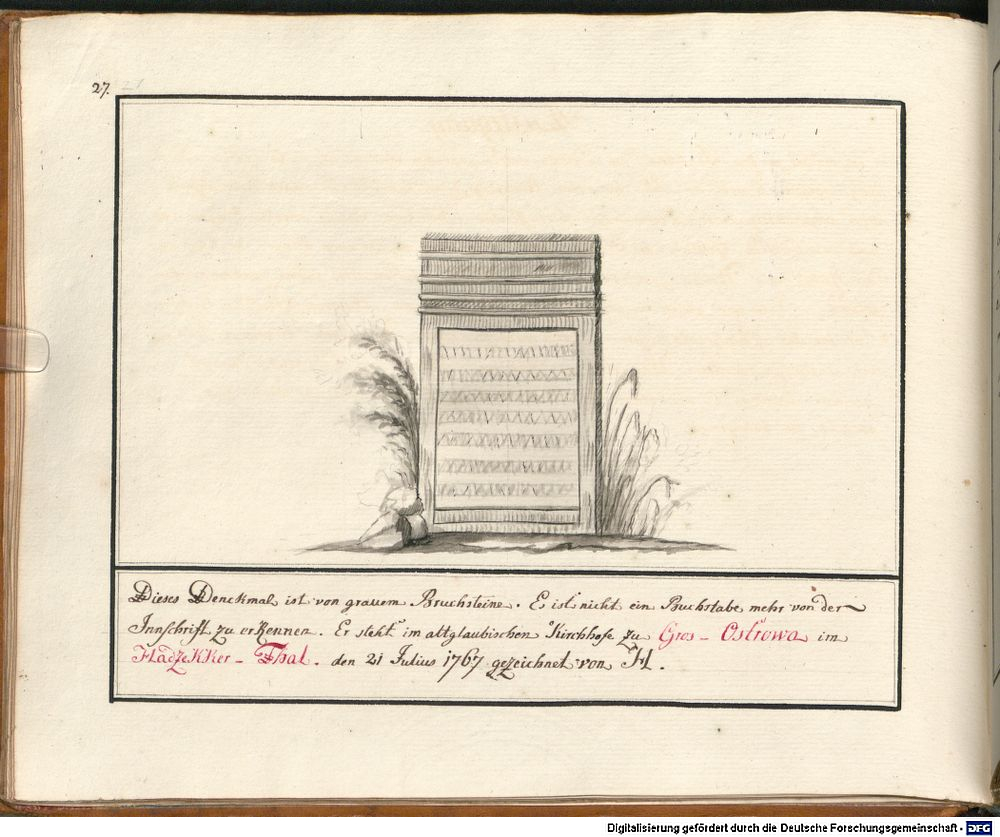 27.
Dieses Denckmal ist von grauem Bruchsteine. Es ist nicht ein Buchstabe mehr von der
Innschrift zu erkennen. Er steht im altglaubischen Kirchhofe zu Gros - Ostrowa im
HadzeKKer - Thal. den 21 Julius 1767 gezeichnet von H.
Digitalisierung gefördert durch die Deutsche Forschungsgemeinschaft - DFG